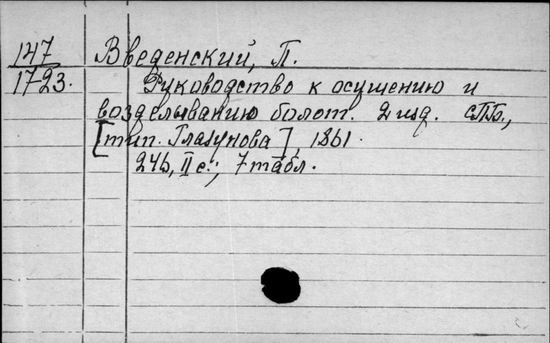 147
1723.
Введенский, П.
Руководство к осушению и
возделыванию болот. 2 изд. СПб.,
[тип. Глазунова], 1861.
246, II с.; 7 табл.